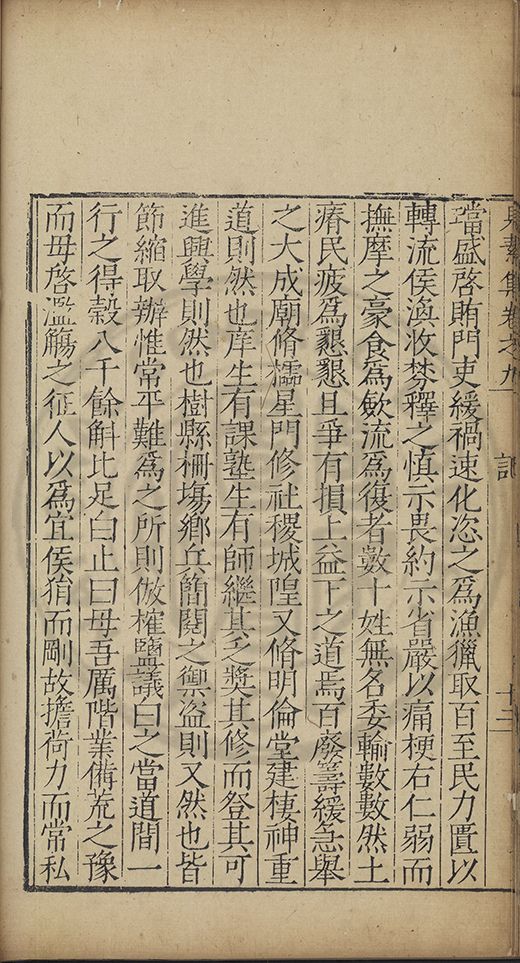 集卷之九 記 十三
璫盛啓賄門吏緩禍速化恣之爲漁獵取百至民力匱以
轉流侯渙汝棼釋之慎示畏約示省嚴以痛梗右仁弱而
撫摩之豪食爲歛流爲復者數十姓無名委輸數數然土
瘠民疲爲懇懇且爭有損上益下之道焉百廢籌緩急舉
之大成廟脩櫺星門修社稷城隍又脩明倫堂建棲神重
道則然也庠生有課塾生有師繼其乏奬其修而登其可
進興學則然也樹縣柵塲鄉兵簡閱之禦盗則又然也皆
節縮取辦惟常平難爲之所則倣榷鹽議白之當道間一
行之得榖八千餘斛比足白止曰毋吾厲階業備荒之豫
而毋啓濫觴之征人以爲宜侯狷而剛故擔荷力而常私